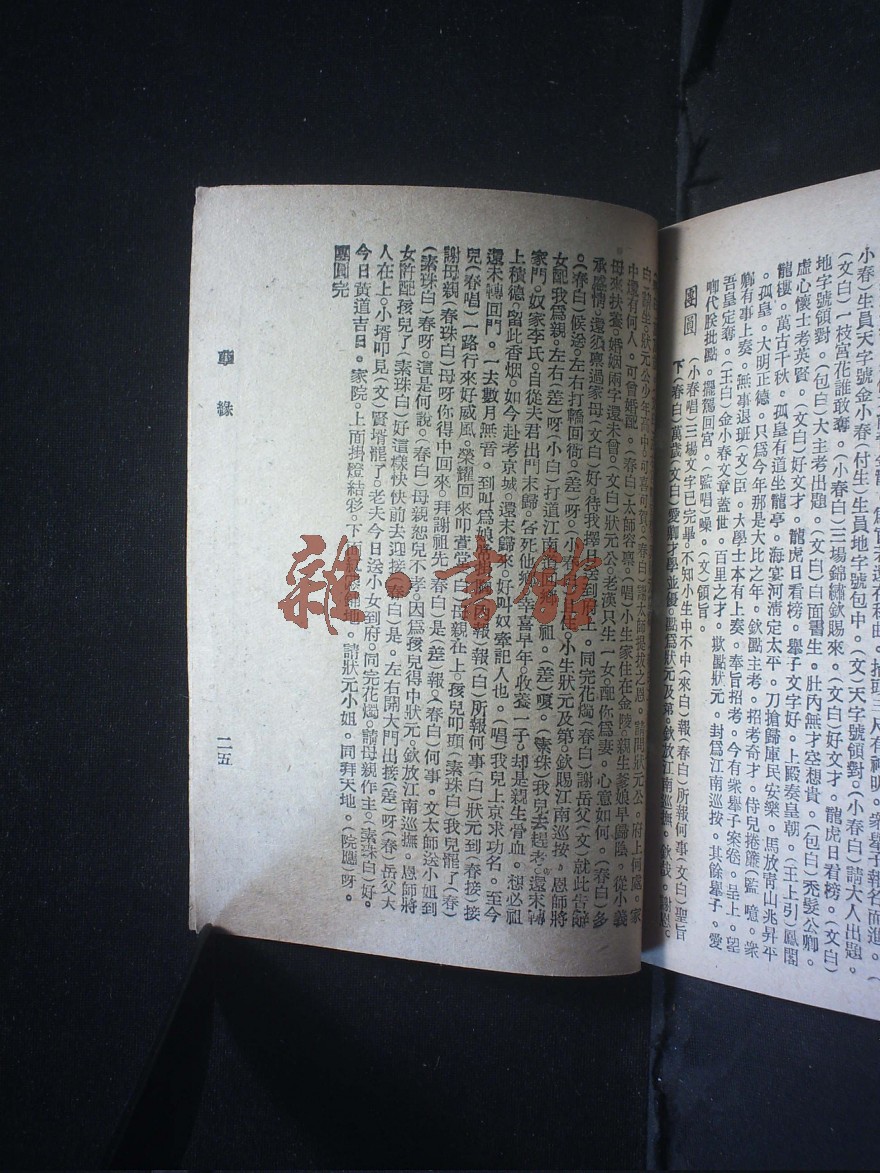 小春)生員天字號金小春(付生)生員地字號包中。(文)天字號領對。(小春白)請大人出題。
(文白)一枝宮花誰敢奪。(小春白)三場錦繡欽賜來。(文白)好文才。龍虎日看榜。(文白)
地字號領對。(包白)大主考出題。(文白)白面書生。肚內無才空想貴。(包白)禿髮公卿。
虛心懷士考英賢。(文白)好文才。龍虎日看榜。舉子文字好。上殿奏皇朝。(王上引)鳳閣
龍樓。萬古千秋。孤皇有道坐龍亭。海宴河清定太平。刀搶歸庫民安樂。馬放靑山兆昇平
。孤皇。大明正德。只爲今年那是大比之年。欽點主考。招考奇才。侍兒捲簾(監)噫。衆
卿有事上奏。無事退班(文)臣。大學士本有上奏。奉旨招考。今有衆舉子案卷。呈上。望
吾皇定奪。(王白)金小春文章蓋世。百里之才。欽點狀元。封爲江南巡按。其餘舉子。愛
卿代朕批點。擺駕回宮。(監唱)噪。(文)領旨。
團圓
(小春唱)三場文字已完畢。不知小生中不中(來白)報(春白)所報何事(文白)聖旨
下(春白)萬歲(文白)愛卿才學並優。點爲狀元及第。欽放江南巡撫。欽哉。謝恩。
狀元公少年高中。可喜可賀。(春白)謝太師提拔之恩。請問狀元公。府上何處。家
中還有何人。可曾婚配。(春白)太師容稟。(唱)小生家住在金陵。親生爹娘早歸陰。從小義
母來扶養。婚姻兩字還未曾(文白)狀元公。老漢只生一女。配你爲妻。心意如何。(春白)多
承盛情。還須稟過家母(文白)好。待我擇日送到府上。同完花燭(春白)謝岳父(文)就此告辭
。(春白)候送。左右打轎回衙。(差)呀。(小春白)小生。小生狀元及第。欽賜江南巡按。恩師將
女配我爲親。左右(差)呀(小白)打道江南祭祖。(差)嗄。(素珠)我兒去赴考。還未轉
家門。奴家李氏。自從夫君出門未歸。客死他鄉。幸喜早年。收養一子。却是親生骨血。想必祖
上積德。留此香烟。如今赴考京城。還未歸來。好叫奴牽記人也。(唱)我兒上京求功名。至今
還未轉回門。一去數月無音。到叫爲娘
兒(春唱)一路行來好威風。榮耀回來叩萱堂
謝母親(春珠白)母呀你得中回來。拜謝祖先(春白)是(差)報。(春白)何事。文太師送小姐到
(素珠白)春呀。這是何說。(春白)母親恕兒不孝。因爲孩兒得中狀元。欽放江南巡撫。恩師將
女許配孩兒了(素珠白)好這樣快快前去迎接(春白)是。左右開大門出接(差)呀(春)岳父大
人在上。小壻叩見(文)賢壻罷了。老夫今日送小女到府。同完花燭。請母親作主。(素珠白)好。
今日黃道吉日。家院。上面掛燈結彩。下面
請狀元小姐。同拜天地。(院應)呀。
團圓完
二五
雜·書館